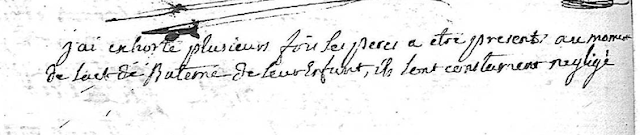 j'ai exhorté plusieurs fois les peres a etre presents au moment
de l'act de Bateme de leur Enfant, ils l'ont constament negligé